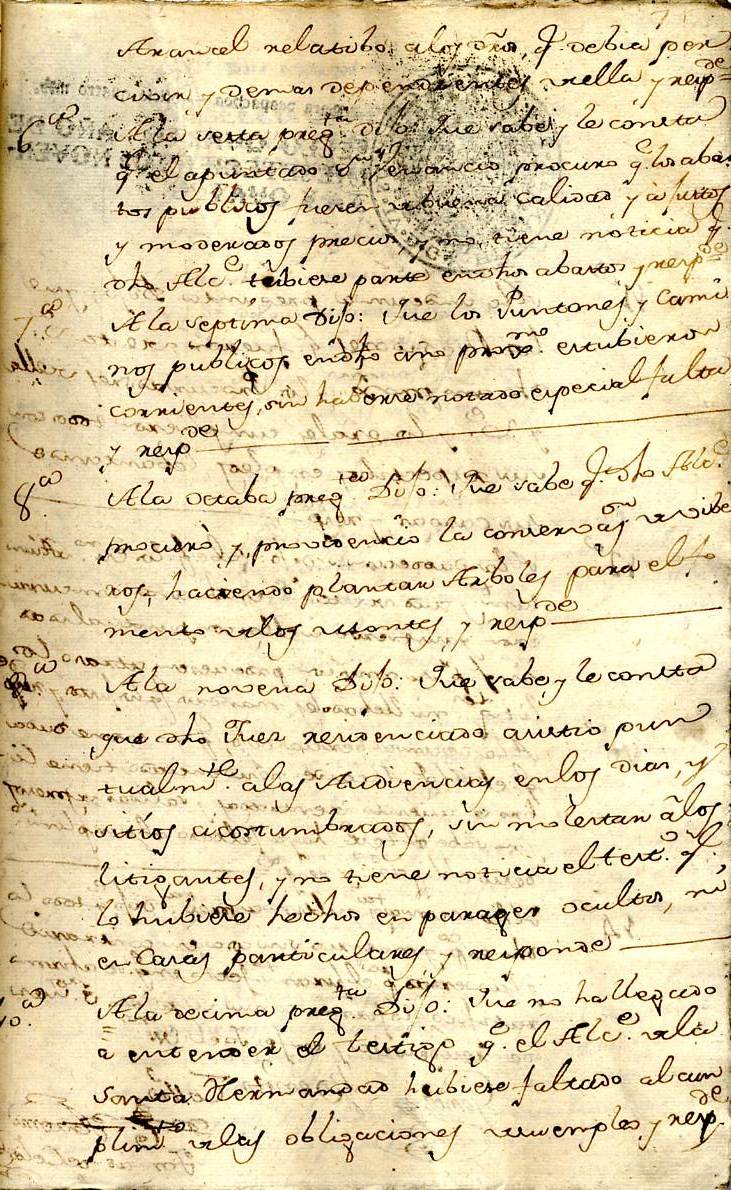 Arancel relatibo alos dros, q.e debia per
civir y demas dependientes della y resp.de
6.a Ala sexta preg.ta Dijo: Que sabe y le consta
q.e el apuntado procuro q.e los abas
tos publicos fuesen de buena calidad y â justos
y moderados precios y no tiene noticia q.e
dho Alc.e tubiese parte en dhos abastos y resp.de
7.a Ala septima Dijo: Que los Puntones y Cami
nos publicos en dho estubieron
corrientes, sin haberse notado especial falta
y resp.de
8.a Ala octaba preg.ta Dijo: Que sabe q.e dho Alc.e
procuró y providenció la conserv.on de vive
ros, haciendo plantar Arboles para el fo
mento de los montes, y resp.de
9.a Ala novena Dijo: Que sabe, y le consta
que dho Juez residenciado asistio pun
tualm.te alas Audiencias en los dias, y
sitios acostumbrados, sin molestar â los
litigantes, y no tiene noticia el test.o q.e
lo hubiese hechos en parages ocultos, ni
en Casas particulares y responde
10.a Ala decima preg.ta Dijo: Que no ha llegado
a entender el testigo q.e el Alc.e de la
Santa Hermandad hubiese faltado al cum
plim.to de las obligaciones de su empleo y resp.de